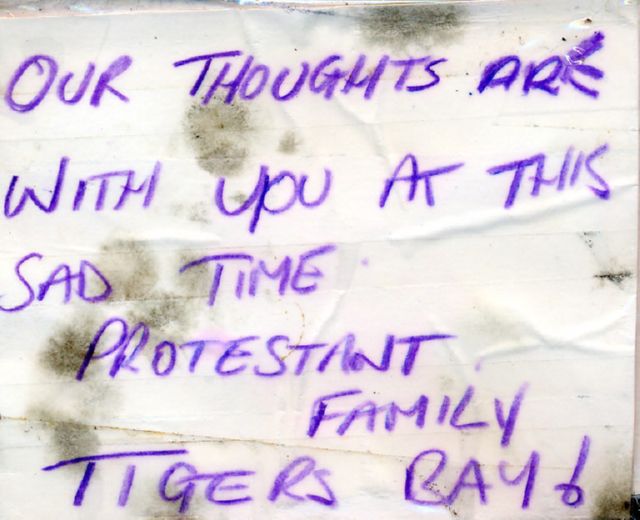 OUR THOUGHTS ARE
WITH YOU AT THIS
SAD TIME.
PROTESTANT
FAMILY
TIGERS BAY